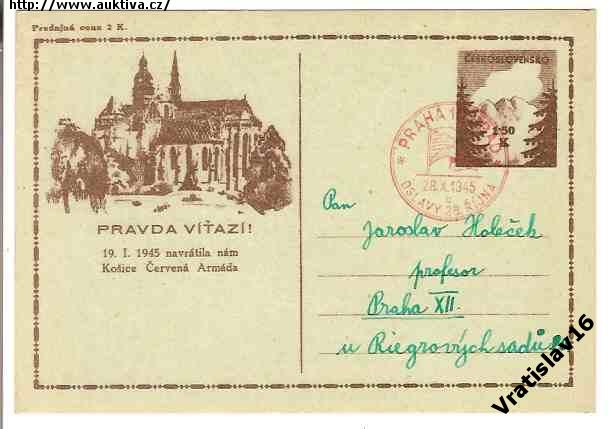 http://www.auktiva.cz/
Predajná cena 2 K.
ČESKOSLOVENSKO
1·50
K
PRAHA 1
28.X.1945
OSLAVY 28. ŘÍJNA
PRAVDA VÍŤAZÍ!
19. I. 1945 navrátila nám
Košice Červená Armáda
Pan
Jaroslav Holeček
profesor
Praha XII.
u Riegrových sadů
Vratislav16